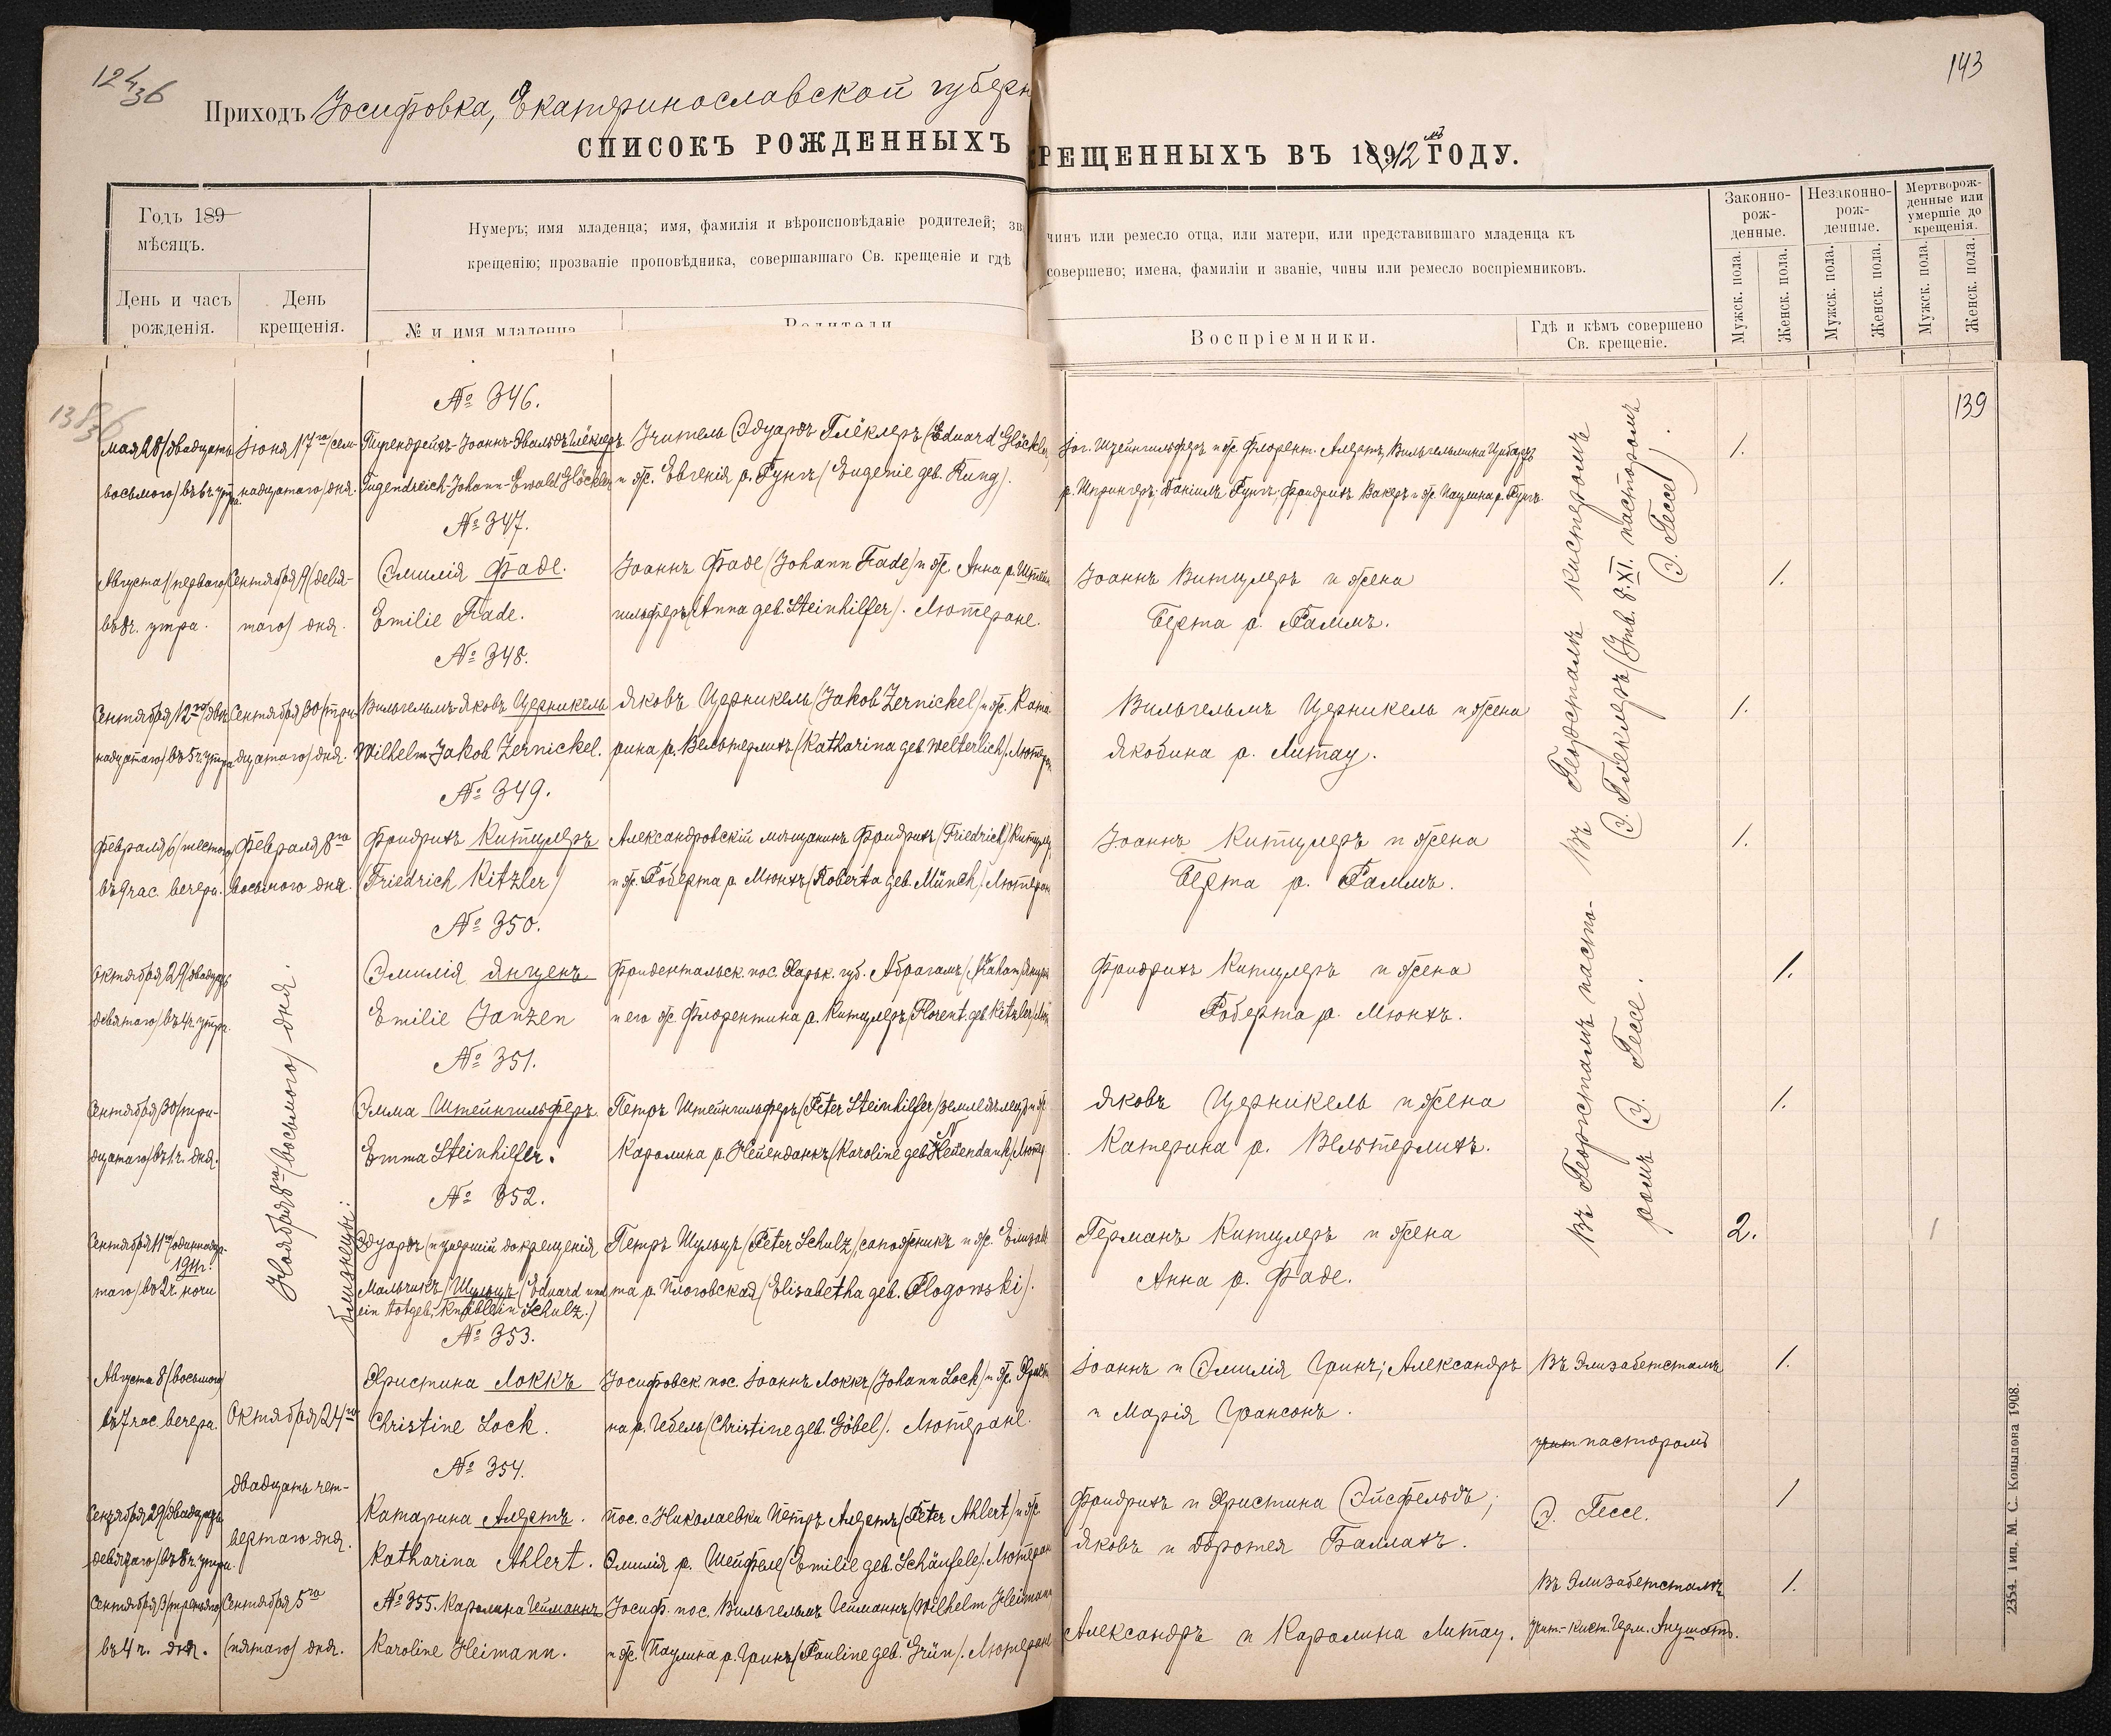 124/36
143
Приходъ Іосифовка, Екатеринославской губерн
СПИСОКЪ РОЖДЕННЫХЪ РЕЩЕННЫХЪ ВЪ 1912 мъ ГОДУ.
Годъ 189
мѣсяцъ.
День и часъ рожденія.
День крещенія.
Нумеръ; имя младенца; имя, фамилія и вѣроисповѣданіе родителей; зв чинъ или ремесло отца, или матери, или представившаго младенца къ
крещенію; прозваніе проповѣдника, совершавшаго Св. крещеніе и гдѣ совершено; имена, фамиліи и званіе, чины или ремесло воспріемниковъ.
№ и имя младенца
Родители
Воспріемники.
Гдѣ и кѣмъ совершено
Св. крещеніе.
Законно-
рож-
денные.
Незаконно-
рож-
денные.
Мертворож-
денные или
умершіе до
крещенія.
Мужск. пола.
Женск. пола.
Мужск. пола.
Женск. пола.
Мужск. пола.
Женск. пола.
139
№ 346.
мая 28 (двадцать
восьмого) въ
утра.
Іюня 17го (сем-
надцатаго) дня.
Іоаннъ-Эвальдъ Глёклеръ.
Jugendreich-Johann-Ewald Glöckler
Учитель Эдуардъ Глёклеръ (Eduard Glöckler)
и ж. Евгенія р. Рунгъ (Eugenie geb. Rung).
Іог. Штейнгильферъ и ж. Флорент. Алертъ, Вильгельмина
р. Шпрингеръ; Даніилъ Рунгъ; Фридрихъ Вакеръ и ж. Паулина р. Рунгъ.
1.
№ 347.
Августа 1 (перваго)
въ 8 ч. утра.
Сентября 9 (девя-
таго) дня.
Эмилія Фаде.
Emilie Fade.
Іоаннъ Фаде (Johann Fade) и ж. Анна р. Штейн
гильферъ (Anna geb. Steinhilfer). Лютеране.
Іоаннъ Китцлеръ и жена
Берта р. Раммъ.
1.
Въ Георгсталѣ кистеромъ
Э. Глеклеръ (Утв. 8.XI. пасторомъ
Э. Гессе).
№ 348.
Сентября 12го (двѣ
надцатаго) въ 5 ч. утра
Сентября 30 (три-
дцатаго) дня.
Вильгельмъ-Яковъ Церникель
Wilhelm-Jakob Zernickel.
Яковъ Церникель (Jakob Zernickel) и ж. Кате
рина р. Вельтерлихъ (Katharina geb. Welterlich). Лютер.
Вильгельмъ Церникель и жена
Якобина р. Литау.
1.
№ 349.
Февраля 6 (шестого)
въ 9 час. вечера.
Февраля 8го
восьмого дня.
Фридрихъ Китцлеръ
(Friedrich Kitzler)
Александровскій мѣщанинъ Фридрихъ (Friedrich) Китцлер
и ж. Роберта р. Мюнхъ (Roberta geb. Münch) Лютеран
Іоаннъ Китцлеръ и жена
Берта р. Раммъ.
1.
№ 350.
Октября 29 (двадцать
девятаго) въ 4 ч. утра.
Ноября 8го (восьмого) дня.
Эмилія Янценъ
Emilie Janzen
Фриденстальск. пос. Харьк. губ. Абрагамъ (Abraham) Янценъ
и его ж. Флорентина р. Китцлеръ (Florent. geb. Kitzler) Лю
Фридрихъ Китцлеръ и жена
Роберта р. Мюнхъ.
1.
Въ Георгсталѣ пасто-
ромъ Э. Гессе.
№ 351.
Сентября 30 (три-
дцатаго) въ 1 ч. дня.
Эмма Штейнгильферъ
Emma Steinhilfer.
Петръ Штейнгильферъ (Peter Steinhilfer) земледѣлецъ и ж.
Каролина р. Нейенданкъ (Karoline geb. Neuendank) Лютер
Яковъ Церникель и жена
Катерина р. Вельтерлихъ.
1.
№ 352.
Сентября 11го (одиннадца-
1911г.
таго) въ 2 ч. ночи
близнецы:
Эдуардъ (и умершій до крещенія
Мальчикъ) Шульцъ (Eduard und
ein totgeb. Knäblein Schulz.)
Петръ Шульцъ (Peter Schulz), сапожникъ и ж. Елизаве
та р. Плоговская (Elisabetha geb. Plogowski).
Германъ Китцлеръ и жена
Анна р. Фаде.
2.
1
№ 353.
Августа 8 (восьмого)
въ 7 час. вечера.
Октября 24го
двадцать чет-
вертаго дня.
Христина Локкъ
Christine Lock.
Іосифовск. пос. Іоаннъ Локкъ (Johann Lock) и ж. Христи
на р. Гебель (Christine geb. Göbel). Лютеране.
Іоаннъ и Эмилія Гринъ; Александръ
и Марія Франсонъ.
Въ Элизабетсталѣ
пасторомъ
Э. Гессе.
1.
№ 354.
Сентября 29 (двадцать
девятаго) въ 8 ч. утра.
Катарина Алертъ.
Katharina Ahlert.
пос. с. Николаевки Петръ Алертъ (Peter Ahlert) и ж.
Эмилія р. Шейфеле (Emilie geb. Schäufele). Лютеран
Фридрихъ и Христина Эйсфельдъ;
Яковъ и Доротея Баллахъ.
1
Сентября 3 (третьяго)
въ 4 ч. дня.
Сентября 5го
(пятаго) дня.
№ 355. Каролина Гейманнъ
Karoline Heimann.
Іосиф. пос. Вильгельмъ Гейманнъ (Wilhelm Heimann
и ж. Паулина р. Гринъ (Pauline geb. Grün). Лютеране
Александръ и Каролина Литау.
Въ Элизабетсталѣ
1.
2354. Тип. М. С. Копылова 1908.